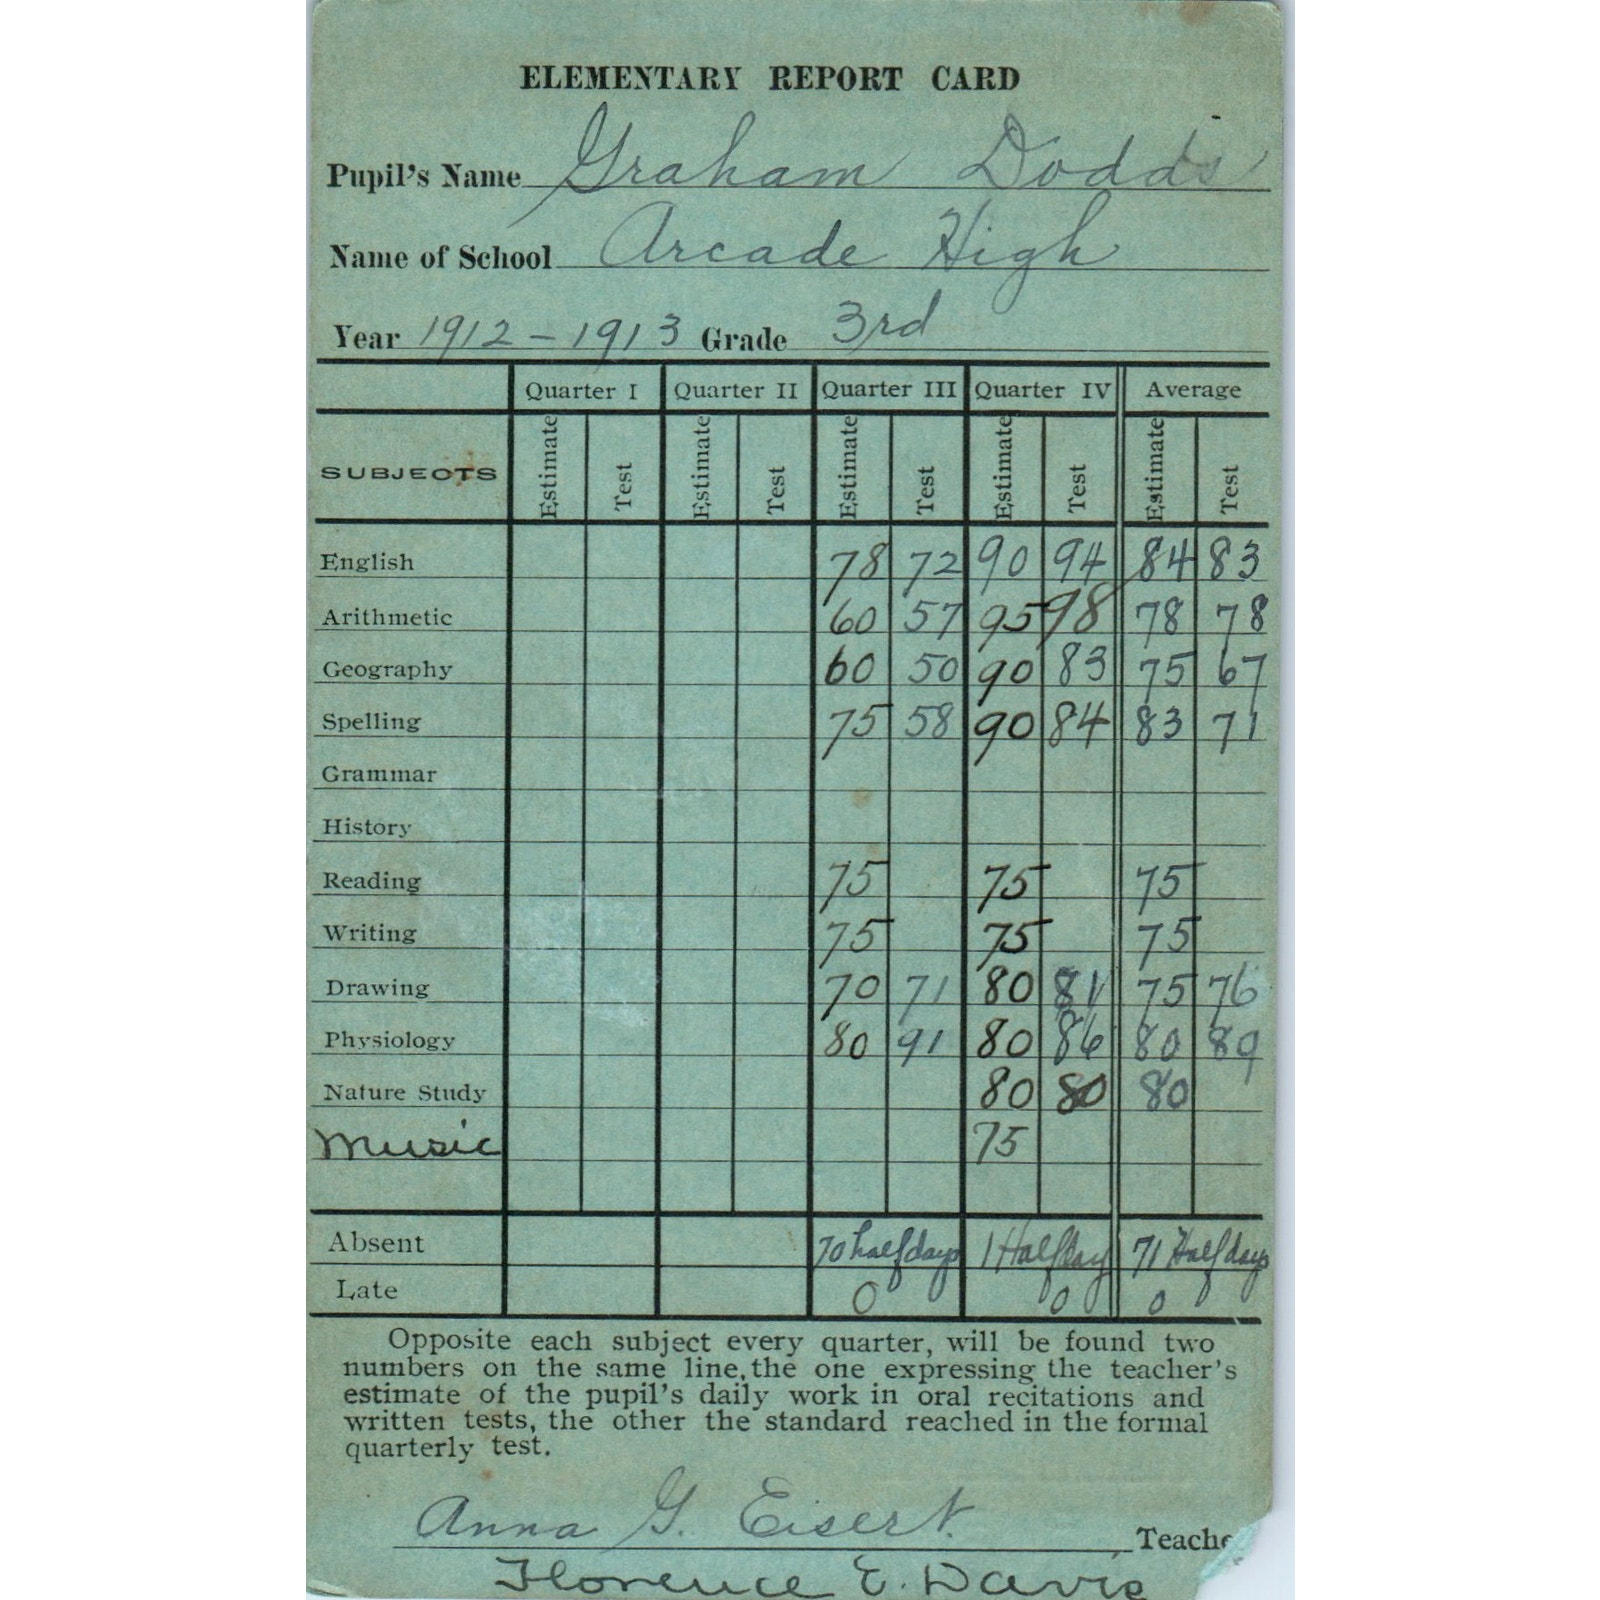 ELEMENTARY REPORT CARD
Pupil's Name Graham Dodds
Name of School Arcade High
Year 1912-1913 Grade 3rd
Quarter I Quarter II Quarter III Quarter IV Average
SUBJECTS Estimate Test Estimate Test Estimate Test Estimate Test Estimate Test
English 78 72 90 94 84 83
Arithmetic 60 57 95 98 78 78
Geography 60 50 90 83 75 67
Spelling 75 58 90 84 83 71
Grammar
History
Reading 75 75 75
Writing 75 75 75
Drawing 70 71 80 81 75 76
Physiology 80 91 80 86 80 89
Nature Study 80 80 80
Music 75
Absent 70 half days 1 Half day 71 Half days
Late 0 0 0
Opposite each subject every quarter, will be found two
numbers on the same line, the one expressing the teacher's
estimate of the pupil's daily work in oral recitations and
written tests, the other the standard reached in the formal
quarterly test.
Anna G. Eisert. Teache
Florence E. Davis